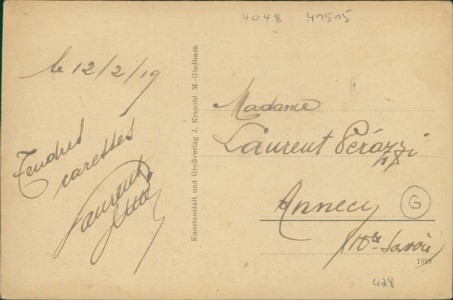 4048 41515
le 12/2/19
Tendres
caresses
Laurent
Kunstanstalt und Großverlag J. Krapohl. M.-Gladbach
Madame
Laurent Pérózzi
Annecy
G
Hte Savoie
1915
428